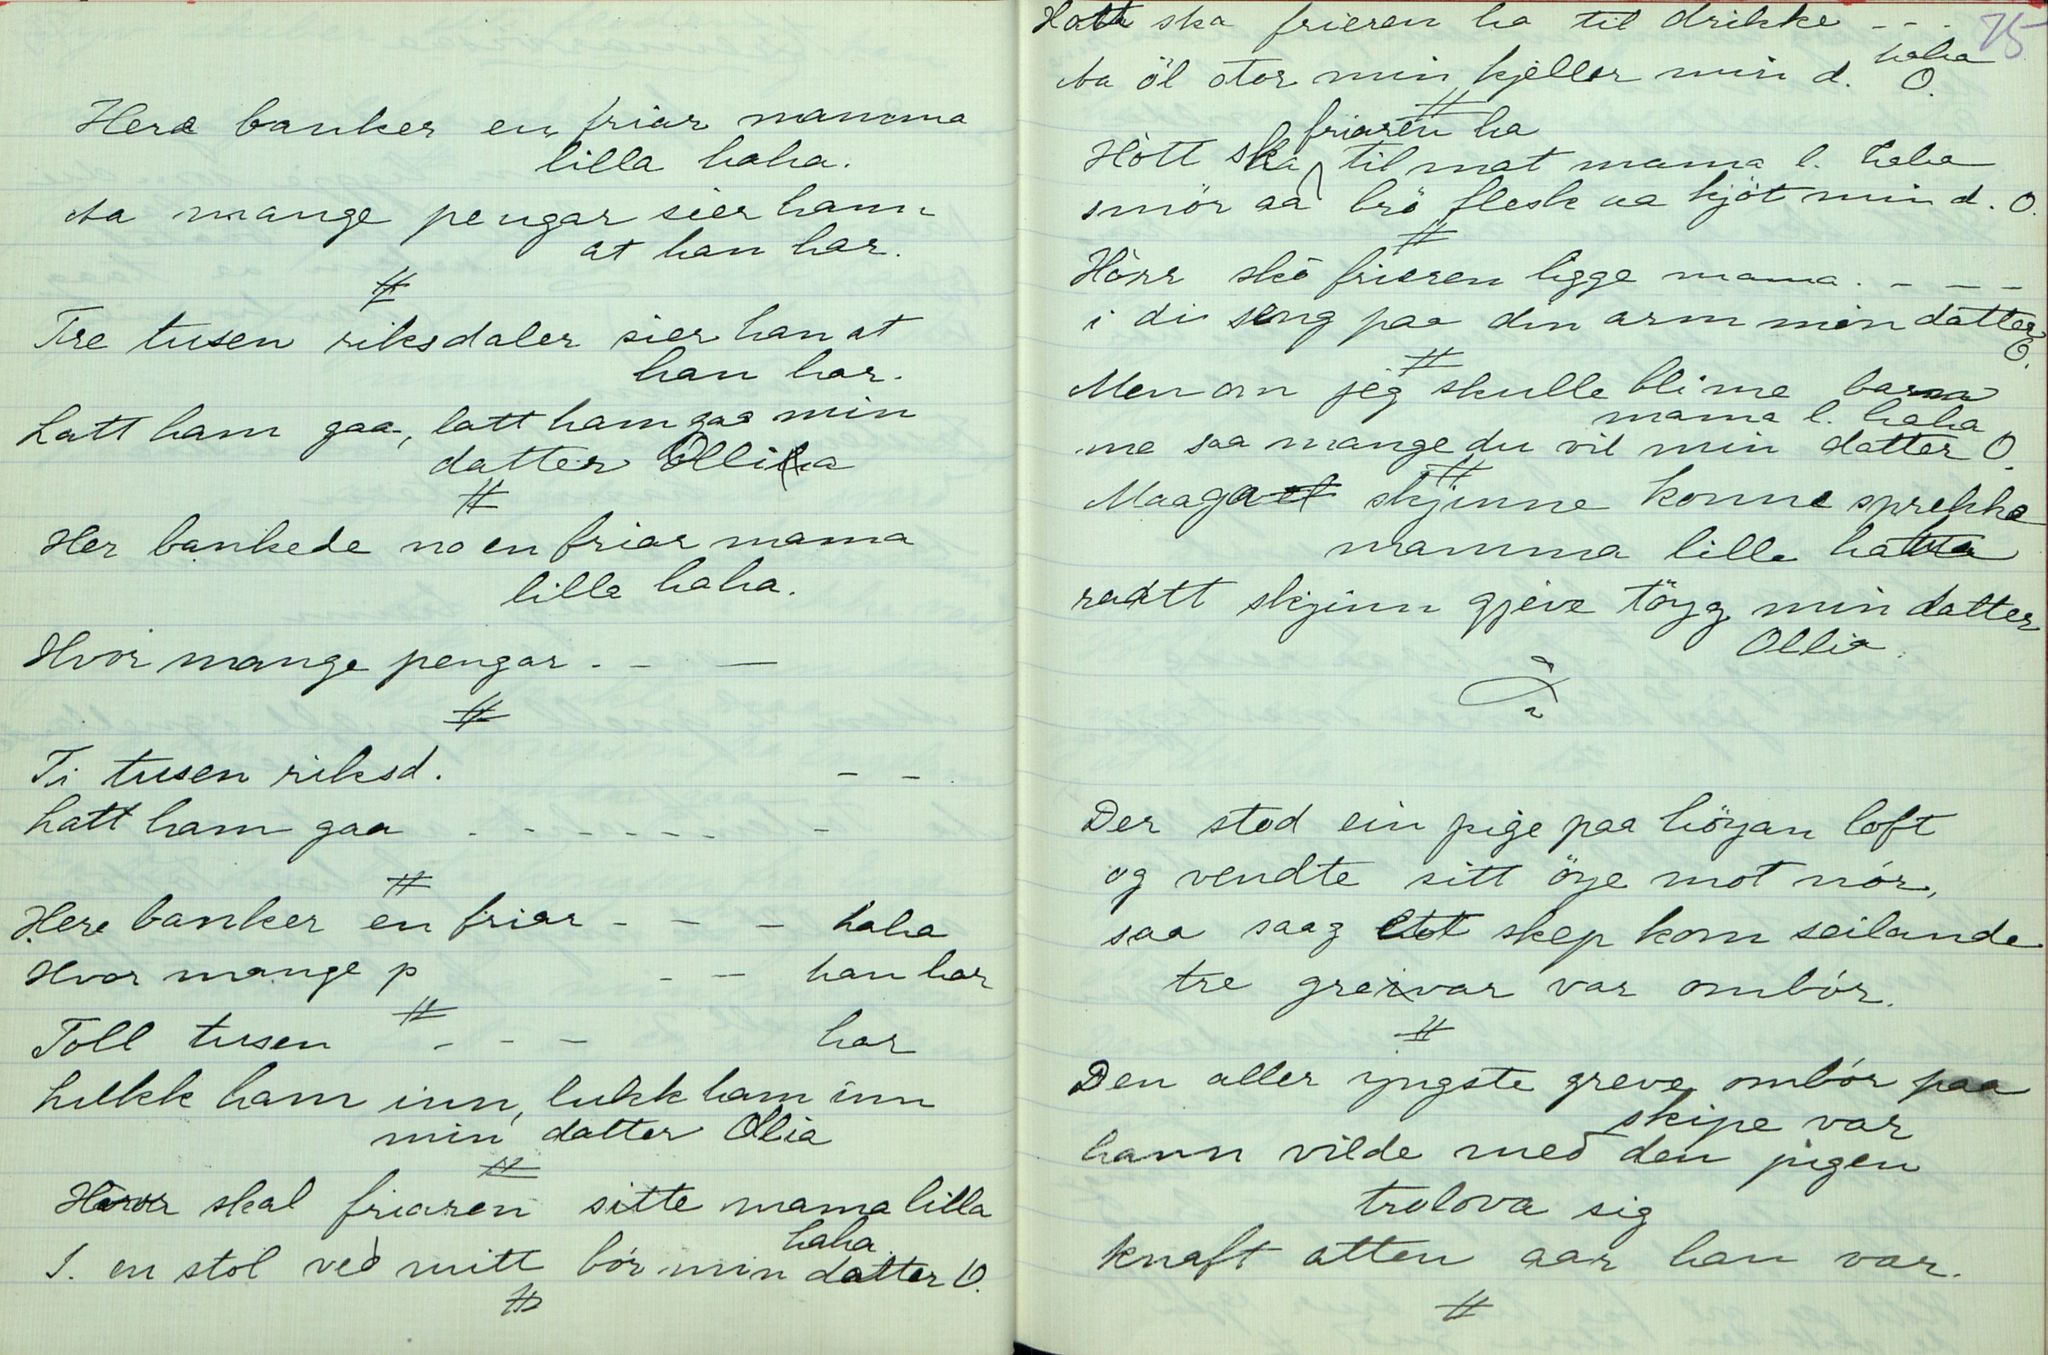 Here banker en friar mamma
lilla haha.
Aa mange pengar sier hann
at han har.
#
Tre tusen riksdaler sier han at
han har.
Latt ham gaa, latt ham gaa min
datter Ollia
#
Her bankede no en friar mama
lilla haha.
Hvor mange pengar - - -
#
Ti tusen riksd. - -
Latt ham gaa - - - - - - -
#
Here banker en friar - - - haha
Hvor mange p - - han har
#
Toll tusen - - - har
Lukk ham inn, lukk ham inn
min datter Ollia
#
Hvor skal friaren sitte mama lilla
haha
I. en stol ved mitt bór min datter O.
#
75
Hott ska frieren ha til drikke - - -
haha
Aa öl otor min kjeller min d. O.
#
friaren ha
Hòtt ska til mat mama l. haha
smör aa brö flesk aa kjöt min d. O.
#
Hórr skó frieren ligge mama. - - -
i di seng paa din arm min datter
O.
#
Men om jeg skulle bli me barn
mama l. haha
me saa mange du vil min datter O.
#
Maaga skjinne konne sprekka
mamma lille haha
radtt skjinn gjeve töyg min datter
Ollia.
Der stod ein pige paa höyan loft
og vendte sitt öye mot nór,
saa saag et skep kom seilande
tre grevar var ombór.
#
Den aller yngste greve ombór paa
skipe var
hann vilde med den pigen
trolova sig
knaft atten aar han var.
#